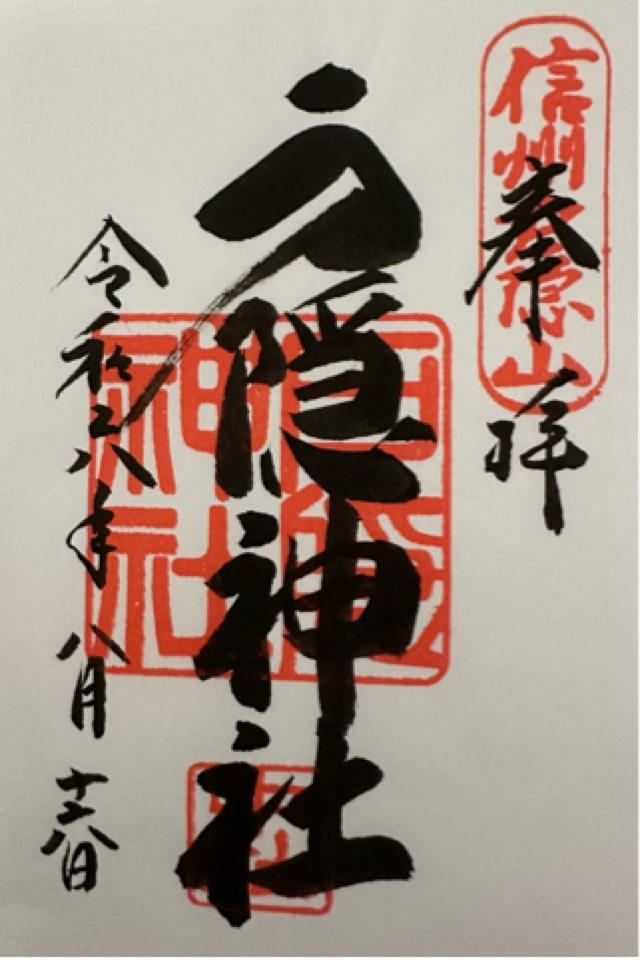 信州戸隠山
奉拝
戸隠神社
戸隠神社
令和六年八月十六日